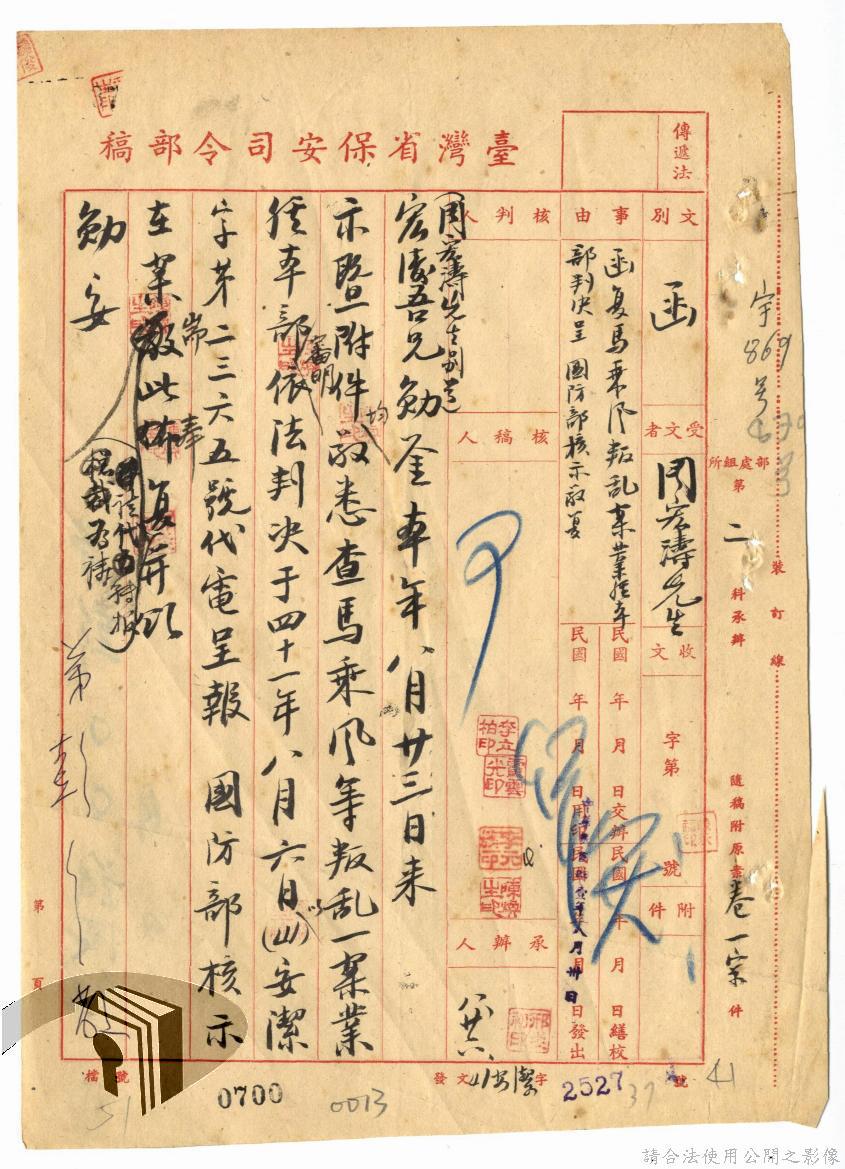 臺灣省保安司令部稿
傳遞法
文別
函
受文者
周宏濤先生
收文
字第
號
附件
事由
函复馬乘风叛乱案業經本
部判决呈 國防部核示敬复
民國 年 月 日交辦
民國 年 月 日繕校
民國 年 月 日用印
民國 年 月 日發出
核判人
核稿人
承辦人
周宏濤先生别道
宏濤吾兄勋鉴本年八月廿三日来
示暨附件均敬悉查馬乘风等叛乱一案業
經本部依法審明判决于四十一年八月六日以(41)安潔
字第二三六五號代電呈報 國防部核示
在案
此佈复并頌
勋安
弟彭
部處組所
第二科承辦
隨稿附原案卷一宗件
裝訂線
字
869
號
第 頁
檔號
0700
0013
發文
字
2527
37
號
41
51
請合法使用公開之影像